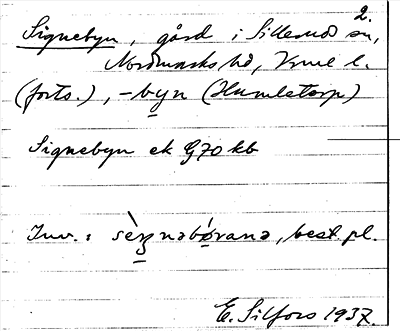 2.
Signebyn, gård i Sillerud sn,
Nordmarks hd, Vrml l.
(forts.), -byn (Humletorp)
Signebyn ek G70 kb
Inv.: , best. pl.
E. Silfors 1937